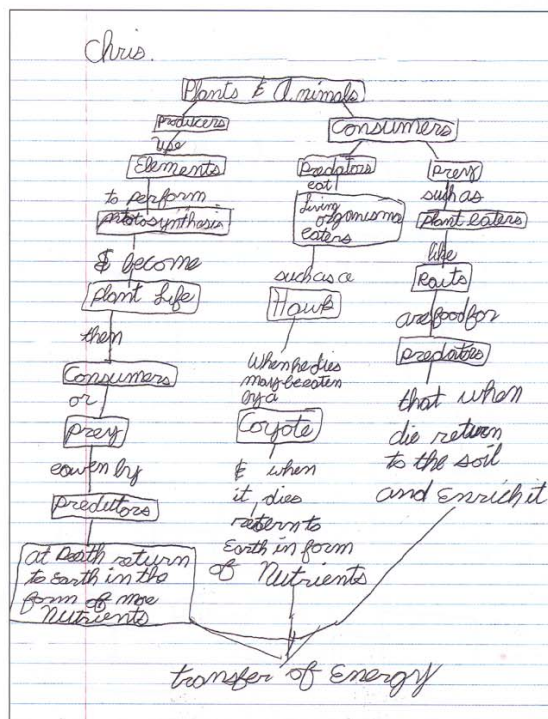 Chris.
Plants & Animals
Producers
use
Elements
to perform
photosynthesis
& become
Plant Life
then
Consumers
or
Prey
eaven by
Predutors
at Death return
to Earth in the
form of more
Nutrients
Consumers
Predators
eat
living
organisms
eaters
such as a
Hawk
When he dies
may be eaten
by a
Coyote
& when
it dies
return to
Earth in form
of Nutrients
Prey
such as
Plant eaters
like
Rats
are food for
predators
that when
die return
to the soil
and Enrich it
transfer of Energy